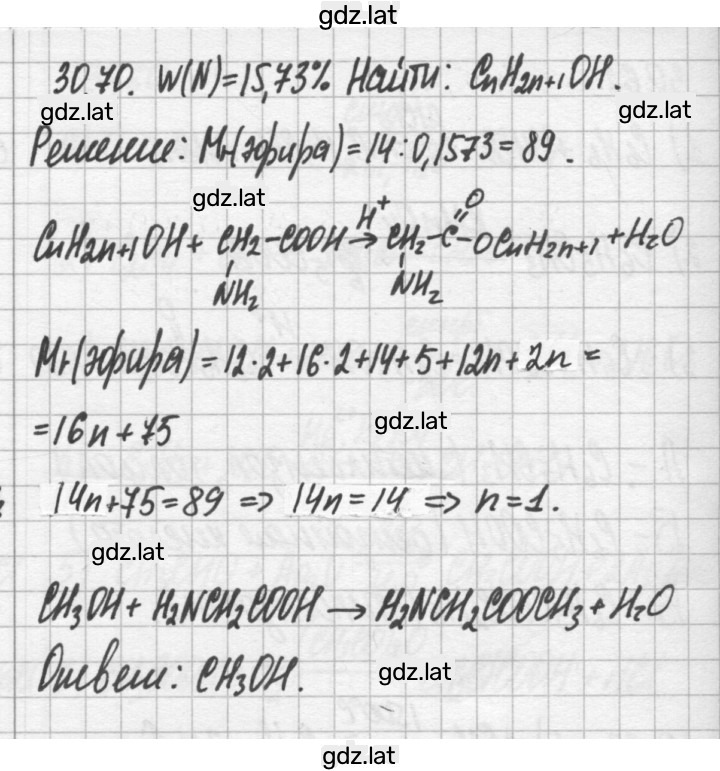 gdz.lat
30.70. W(N)=15,73% Найти: CnH2n+1OH.
gdz.lat gdz.lat
Решение: Mr(эфира)=14:0,1573=89.
gdz.lat
CnH2n+1OH + CH2-COOH H+→ CH2-C(=O)-OCnH2n+1 + H2O
NH2 NH2
Mr(эфира)=12·2+16·2+14+5+12n+2n=
=16n+75
gdz.lat
14n+75=89 => 14n=14 => n=1.
gdz.lat
CH3OH + H2NCH2COOH → H2NCH2COOCH3 + H2O
Ответ: CH3OH.
gdz.lat
gdz.lat